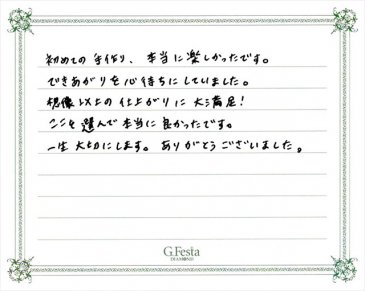 初めての手作り、本当に楽しかったです。
できあがりを心待ちにしていました。
想像以上の仕上がりに大満足！
ここを選んで本当に良かったです。
一生大切にします。ありがとうございました。
G.Festa
DIAMOND